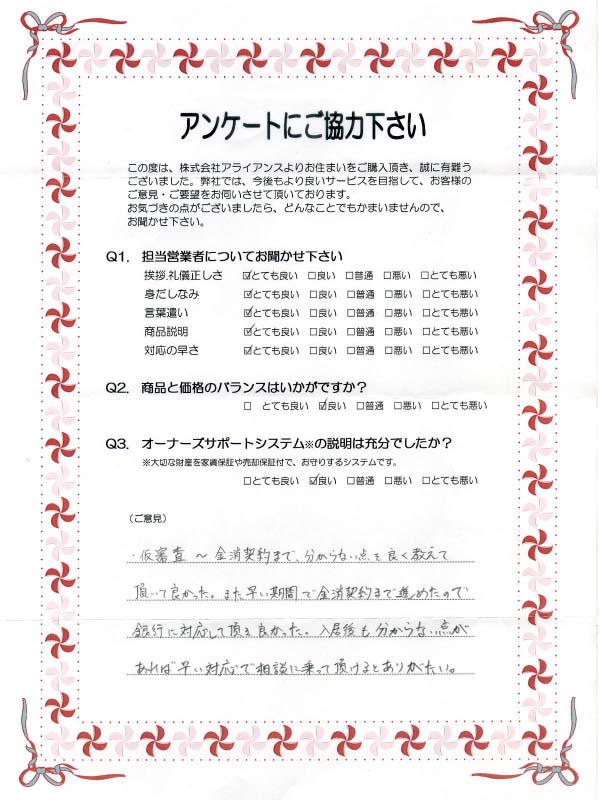 アンケートにご協力下さい
この度は、株式会社アライアンスよりお住まいをご購入頂き、誠に有難う
ございました。弊社では、今後もより良いサービスを目指して、お客様の
ご意見・ご要望をお伺いさせて頂いております。
お気づきの点がございましたら、どんなことでもかまいませんので、
お聞かせ下さい。
Q1. 担当営業者についてお聞かせ下さい
挨拶,礼儀正しさ ☑とても良い □良い □普通 □悪い □とても悪い
身だしなみ ☑とても良い □良い □普通 □悪い □とても悪い
言葉遣い ☑とても良い □良い □普通 □悪い □とても悪い
商品説明 ☑とても良い □良い □普通 □悪い □とても悪い
対応の早さ ☑とても良い □良い □普通 □悪い □とても悪い
Q2. 商品と価格のバランスはいかがですか？
□ とても良い ☑良い □普通 □悪い □とても悪い
Q3. オーナーズサポートシステム※の説明は充分でしたか？
※大切な財産を家賃保証や売却保証付で、お守りするシステムです。
□とても良い ☑良い □普通 □悪い □とても悪い
（ご意見）
・仮審査 ～ 金消契約まで、分からない点を良く教えて
頂いて良かった。また早い期間で金消契約まで進めたので
銀行に対応して頂き良かった。入居後も分からない点が
あれば早い対応で相談に乗って頂けるとありがたい。